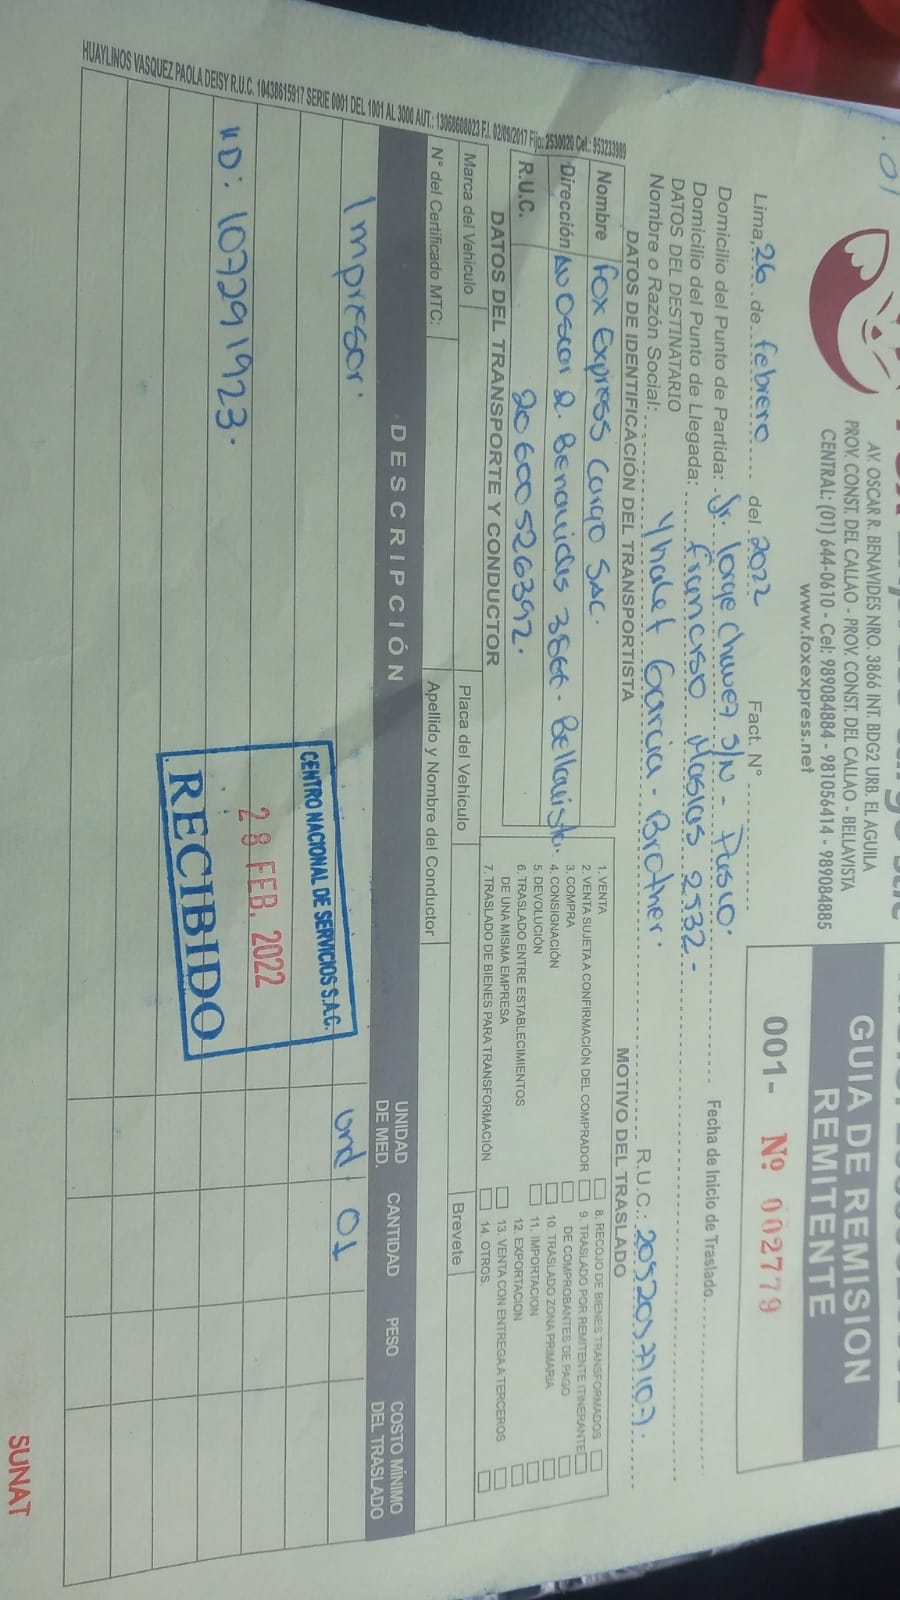 AV. OSCAR R. BENAVIDES NRO. 3866 INT. BDG2 URB. EL AGUILA
PROV. CONST. DEL CALLAO - PROV. CONST. DEL CALLAO - BELLAVISTA
CENTRAL: (01) 644-0610 - Cel: 989084884 - 981056414 - 989084885
www.foxexpress.net
GUIA DE REMISION
REMITENTE
001- Nº 002779
Lima, 26 de febrero del 2022 Fact. N°
Domicilio del Punto de Partida: Jr. Jorge Chavez S/N - Fecha de Inicio de Traslado
Domicilio del Punto de Llegada: Francisco Masias 2532.-
DATOS DEL DESTINATARIO
Nombre o Razón Social: Garcia - Brother. R.U.C.:
DATOS DE IDENTIFICACIÓN DEL TRANSPORTISTA
Nombre Fox Express Cargo SAC.
Dirección Av Oscar R. Benavides 3866 - Bellavista.
R.U.C. 20600526392.
MOTIVO DEL TRASLADO
1. VENTA
2. VENTA SUJETA A CONFIRMACIÓN DEL COMPRADOR
3. COMPRA
4. CONSIGNACIÓN
5. DEVOLUCIÓN
6. TRASLADO ENTRE ESTABLECIMIENTOS
DE UNA MISMA EMPRESA
7. TRASLADO DE BIENES PARA TRANSFORMACIÓN
8. RECOJO DE BIENES TRANSFORMADOS
9. TRASLADO POR REMITENTE ITINERANTE
DE COMPROBANTES DE PAGO
10. TRASLADO ZONA PRIMARIA
11. IMPORTACION
12. EXPORTACION
13. VENTA CON ENTREGA A TERCEROS
14. OTROS
DATOS DEL TRANSPORTE Y CONDUCTOR
Marca del Vehiculo Placa del Vehiculo
N° del Certificado MTC: Apellido y Nombre del Conductor Brevete
DESCRIPCIÓN UNIDAD DE MED. CANTIDAD PESO COSTO MÍNIMO DEL TRASLADO
Impresor. und 01
CENTRO NACIONAL DE SERVICIOS S.A.C.
28 FEB. 2022
RECIBIDO
"D: 107291923.
HUAYLINOS VASQUEZ PAOLA DEISY R.U.C. 10438615917 SERIE 0001 DEL 1001 AL 3000 AUT.: 13068608023 F.I. 02/09/2017 Fijo: 2530020 Cel.: 953233889
SUNAT